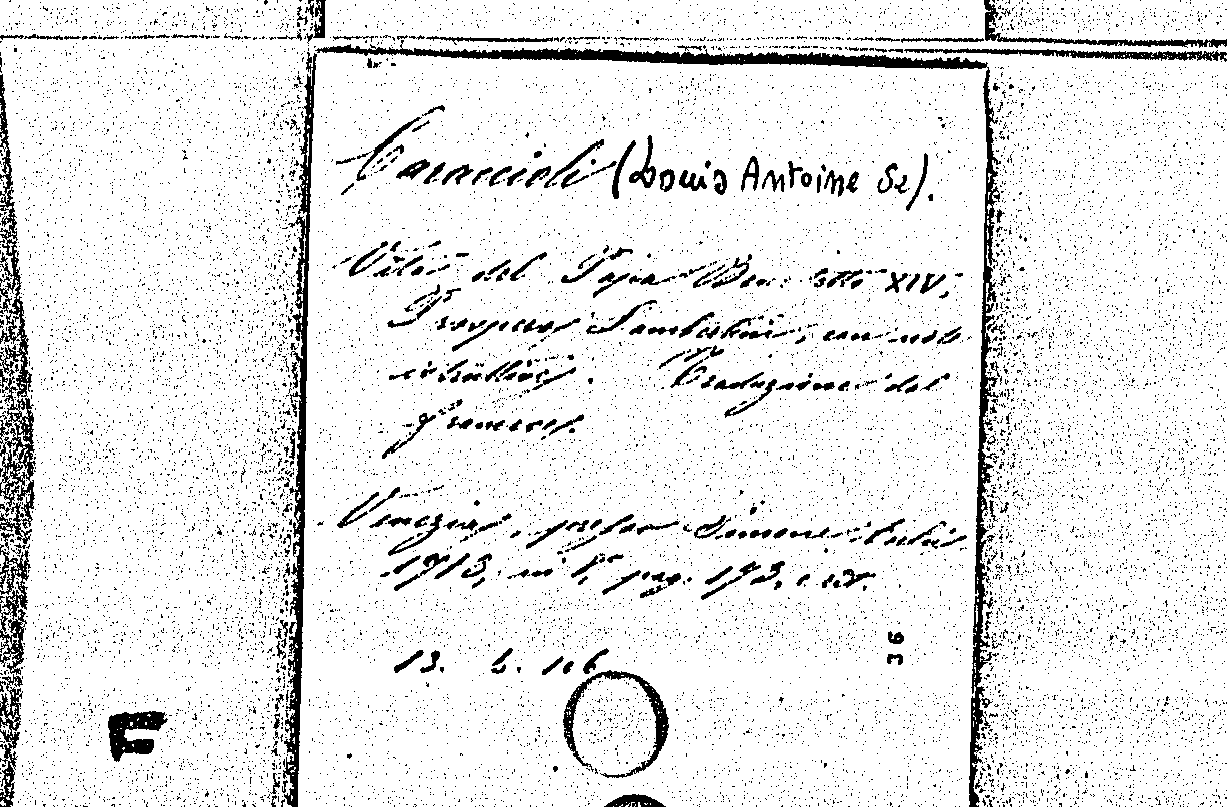 Caraccioli (Louis Antoine de).
Vita del Papa Benedetto XIV,
Prospero Lambertini, con note
istruttive. Traduzione dal
francese.
Venezia, presso Simone Occhi
in pag. 193, e
13. b.
36
E